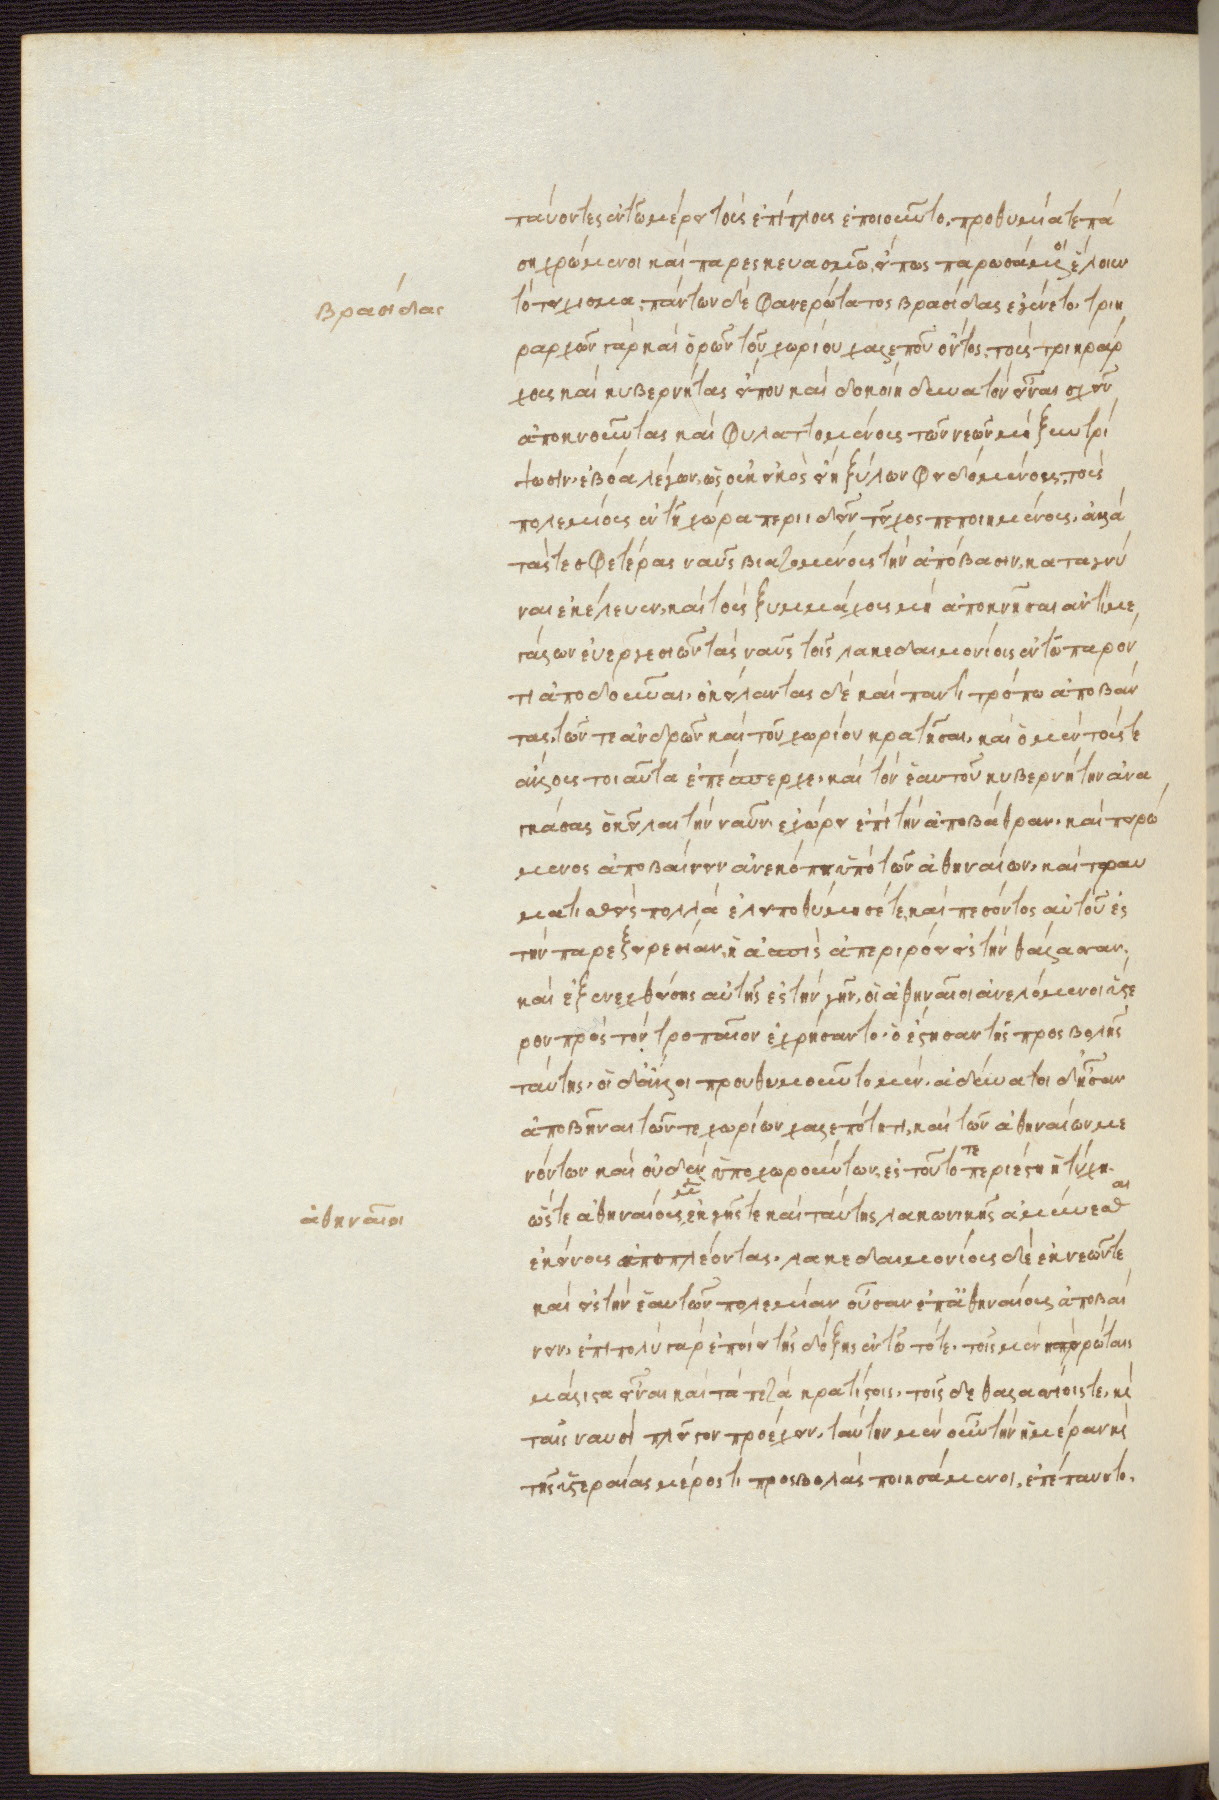 παύοντες ἐν τῶ μέρει τοὺς ἐπίπλους ἐποιοῦντο. προθυμία τε πά
ση χρώμενοι καὶ παρεσκευασμῶ, εἴ πως ὠσάμενοι ἕλοιεν
Βρασίδας
τὸ τείχισμα. πάντων δὲ φανερώτατος βρασίδας ἐγένετο. τριη
ραρχῶν γὰρ καὶ ὁρῶν τοῦ χωρίου χαλεποῦ ὄντος, τοὺς τριηράρ
χους καὶ κυβερνήτας εἴ που καὶ δοκοίη δυνατὸν εἶναι σχεῖν
ἀποκνοῦντας καὶ φυλαττομένους τῶν νεῶν μὴ ξυντρί
ψωσιν, ἐβόα λέγων, ὡς οὐκ εἰκὸς εἴη ξύλων φειδομένους, τοὺς
πολεμίους ἐν τῆ χώρα περιιδεῖν τεῖχος πεποιημένους. ἀλλὰ
τάς τε σφετέρας ναῦς βιαζομένους τὴν ἀπόβασιν, καταγνύ
ναι ἐκέλευεν, καὶ τοὺς ξυμμάχους μὴ ἀποκνῆσαι ἀντὶ με
γάλων εὐεργεσιῶν τὰς ναῦς τοῖς λακεδαιμονίοις ἐν τῶ παρόν
τι ἀποδοῦναι. ὀκείλαντας δὲ καὶ παντὶ τρόπω ἀποβάν
τας, τῶν τε ἀνδρῶν καὶ τοῦ χωρίου κρατῆσαι. καὶ ὁ μὲν τούς τε
ἄλλους τοιαῦτα ἐπέσπερχε. καὶ τὸν ἑαυτοῦ κυβερνήτην ἀνα
γκάσας ὀκεῖλαι τὴν ναῦν, ἐχώρει ἐπὶ τὴν ἀποβάθραν. καὶ πειρώ
μενος ἀποβαίνειν ἀνεκόπη ὑπὸ τῶν ἀθηναίων. καὶ τραυ
ματισθεὶς πολλὰ ἐλειποθύμησέ τε, καὶ πεσόντος αὐτοῦ ἐς
τὴν παρεξειρεσίαν, ἡ ἀσπὶς ἀπεριρύει εἰς τὴν θάλασσαν.
καὶ ἐξενεχθείσης αὐτῆς ἐς τὴν γῆν, οἱ ἀθηναῖοι ἀνελόμενοι ὕστε
ρον πρὸς τὸ τροπαῖον ἐχρήσαντο. ὃ ἔστησαν τῆς προσβολῆς
ταύτης. οἱ δ' ἄλλοι προυθυμοῦντο μέν. ἀδύνατοι δ' ἦσαν
ἀποβῆναι τῶν τε χωρίων χαλεπότητι, καὶ τῶν ἀθηναίων με
νόντων καὶ οὐδὲν ὑποχωρούντων. ἐς τοῦτό τε περιέστη ἡ τύχη.
ἀθηναῖοι
ὥστε ἀθηναίους μὲν ἐκ γῆς τε καὶ ταύτης λακωνικῆς ἀμύνεσθαι
ἐκείνους ἐπιπλέοντας. λακεδαιμονίους δὲ ἐκ νεῶν τε
καὶ εἰς τὴν ἑαυτῶν πολεμίαν οὖσαν ἐπ' ἀθηναίους ἀποβαί
νειν. ἐπὶ πολὺ γὰρ ἐποίει τῆς δόξης ἐν τῶ τότε. τοῖς μὲν ἠπειρώταις
μάλιστα εἶναι καὶ τὰ πεζὰ κρατίστοις. τοῖς δὲ θαλασσίοις τε, καὶ
ταῖς ναυσὶ πλεῖστον προέχειν. ταύτην μὲν οὖν τὴν ἡμέραν καὶ
τῆς ὑστεραίας μέρος τι προσβολὰς ποιησάμενοι, ἐπέπαυντο.